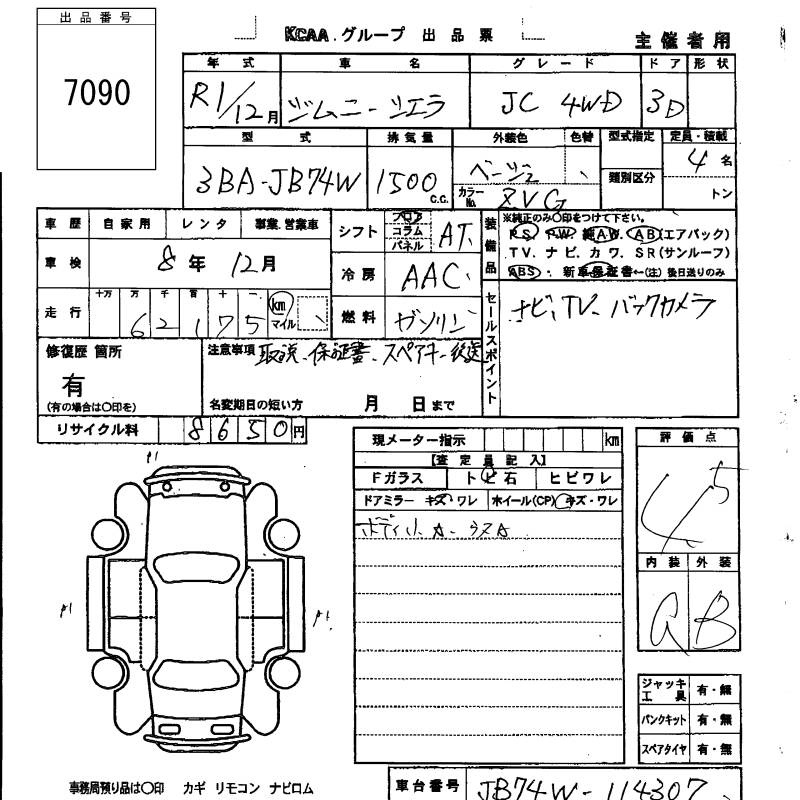 出品番号
7090
KCAA グループ 出品票
主催者用
年式 車名 グレード ドア 形状
R1/12月 ジムニーシエラ JC 4WD 3D
型式 排気量 外装色 色替 型式指定 定員・積載
3BA-JB74W 1500 c.c. ベージュ カラーNo. ZVG 類別区分 4名
トン
車歴 自家用 レンタ 事業、営業車
シフト フロア コラム パネル AT
装備品 ※純正のみ〇印をつけて下さい。
PS. PW. 純AW. AB(エアバック)
TV. ナビ. カワ. SR(サンルーフ)
ABS・新車保証書←(注)後日送りのみ
車検 8年 12月
冷房 AAC
走行 十万 万 千 百 十 一
62175 km マイル
燃料 ガソリン
セールスポイント
ナビ、TV、バックカメラ
修復歴 箇所
有
(有の場合は〇印を)
注意事項 取説、保証書、スペアキー後送
名変期日の短い方 月 日まで
リサイクル料 8650円
現メーター指示 km
【査定員記入】
Fガラス トビ石 ヒビワレ
ドアミラー キズ・ワレ ホイール(CP) キズ・ワレ
評価点
4.5
内装 外装
A1
A1
A1
B
ジャッキ工具 有・無
パンクキット 有・無
スペアタイヤ 有・無
事務局預り品は〇印 カギ リモコン ナビロム
車台番号 JB74W-114307